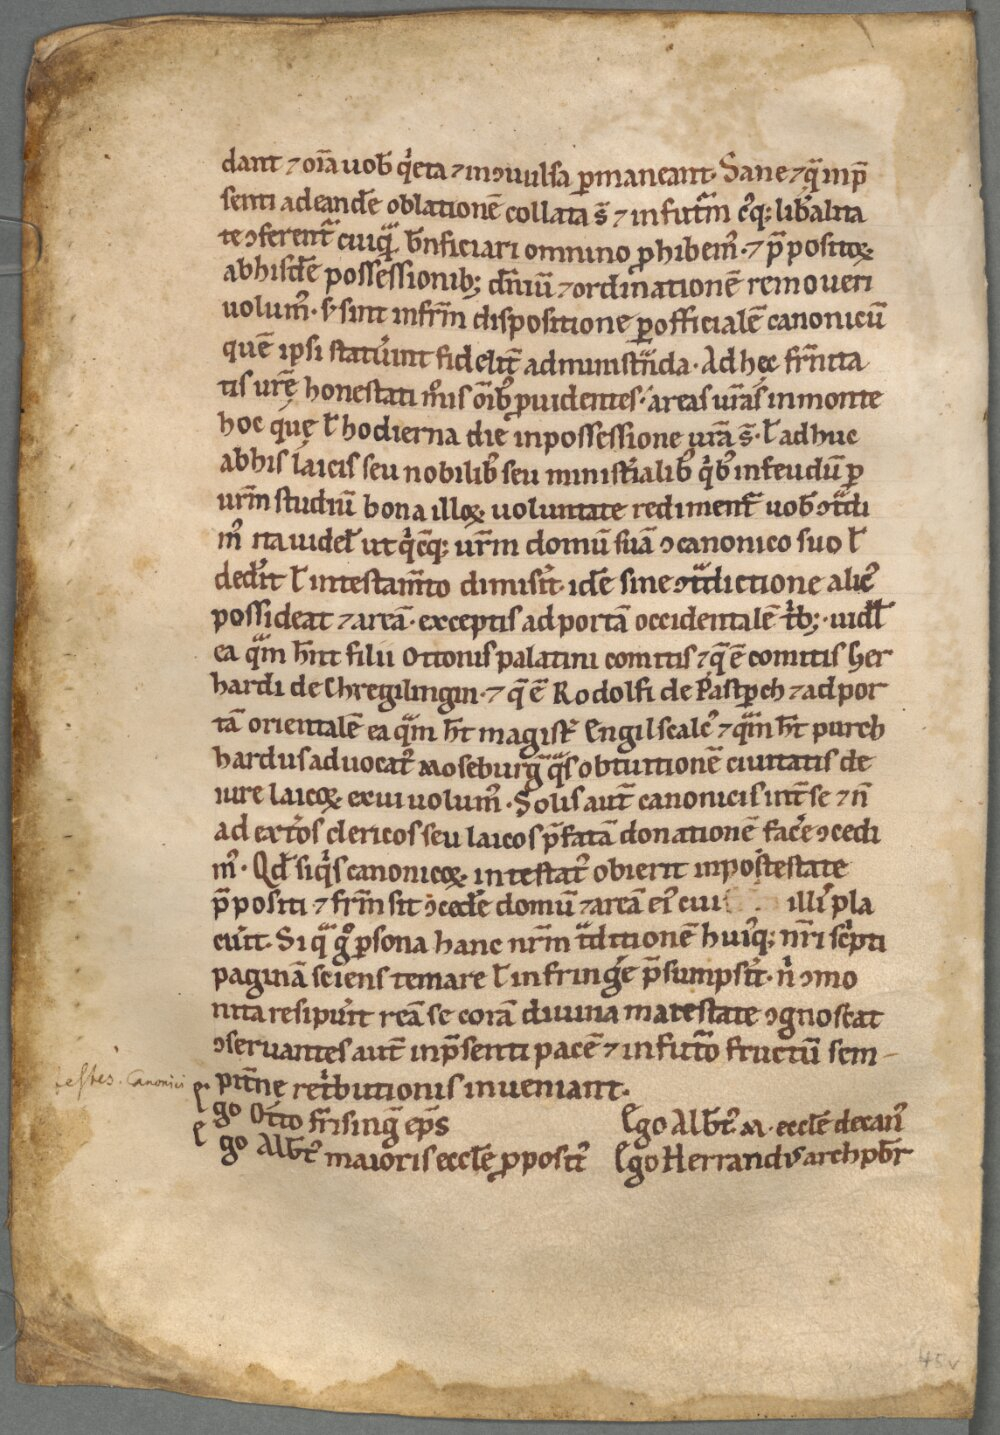 dant ⁊ oīa uob̄ q̇eta ⁊ inↄuulsa ꝑmaneant. Sane ⁊ q̄ inp̄
senti ad eandē oblationē collata s̄ ⁊ in futur̄m q̇cq; lib̓alita
te ↄferent̄ cuiq̄ b̄nficiari omnino ꝓhibem᷒. ⁊ p̄positoꝝ
ab hisdē possessionib; dn̄iū ⁊ ordinationē remoueri
uolum᷒. ⁊ sint in fr̄m dispositione ꝑ officialē canonicū
quē ipsi statu̓int fidelit̄ administ̄nda. Ad hęc fr̄nita
tis ur̄ę honestati m̊is oīb᷒ ꝓuidentes. areas ur̄as in monte
hoc quę ł hodierna die in possessione ur̄a s̄. ł adhuc
ab his laicis seu nobilib᷒ seu minist̓ialib᷒ q̇b᷒ in feudū ꝑ
ur̄m studiū bona illoꝝ uoluntate rediment̄ uob̄ ↄt̄di
m᷒ ita uidel̄ ut q̇cq; ur̄m domū suā ↄcanonico suo ł
ded̓it ł in testam̄to dimis̓it. idē sine ↄt̄dictione alic᷒
possideat ⁊ areā. exceptis ad portā occidentalē t̓b;. uidl̄
ea q̄m h̄nt filii Ottonis palatini comitis ⁊ q̄ ē comitis Ger
hardi de Chregilingin. ⁊ q̄ ē Rodolfi de Pastꝑch ⁊ ad por
tā orientalē ea q̄m h̄t magist̓ Engilscalc᷒ ⁊ q̄m h̄t purch
hardus aduocat᷒ Moseburḡ q̄s ob tuitionē ciuitatis de
iure laicoꝝ exui uolum᷒. Solis aut̄ canonicis int̄ se ⁊ n̄
ad ext̓os clericos seu laicos p̄fatā donationē fac̓e ↄcedi
m᷒. Qd̄ siq̇s canonicoꝝ intestat᷒ obierit in potestate
p̄positi ⁊ fr̄m sit ↄced̓e domū ⁊ areā ei᷒ cui illi᷒ pla
cu̓it. Si q̄ g̊ ꝑsona hanc nr̄m t̄ditionē hui᷒q; nr̄i sc̓pti
paginā sciens temare ł infring̓e p̄sumps̓it. n̓ ↄmo
nita resipu̓it reā se corā diuina maiestate ↄgnoscat
ↄseruantes aut̄ in p̄senti pacē ⁊ in futur̄o fructū sem-
pit̄nę ret̓butionis inueniant.
testes. Canonici
Ego Otto frisinḡ ep̄s
Ego Alb̄t᷒ maioris eccl̄e ꝓposit᷒
Ego Alb̄t᷒ M. eccl̄e decan᷒
Ego Herrandus archpb̄r
45v